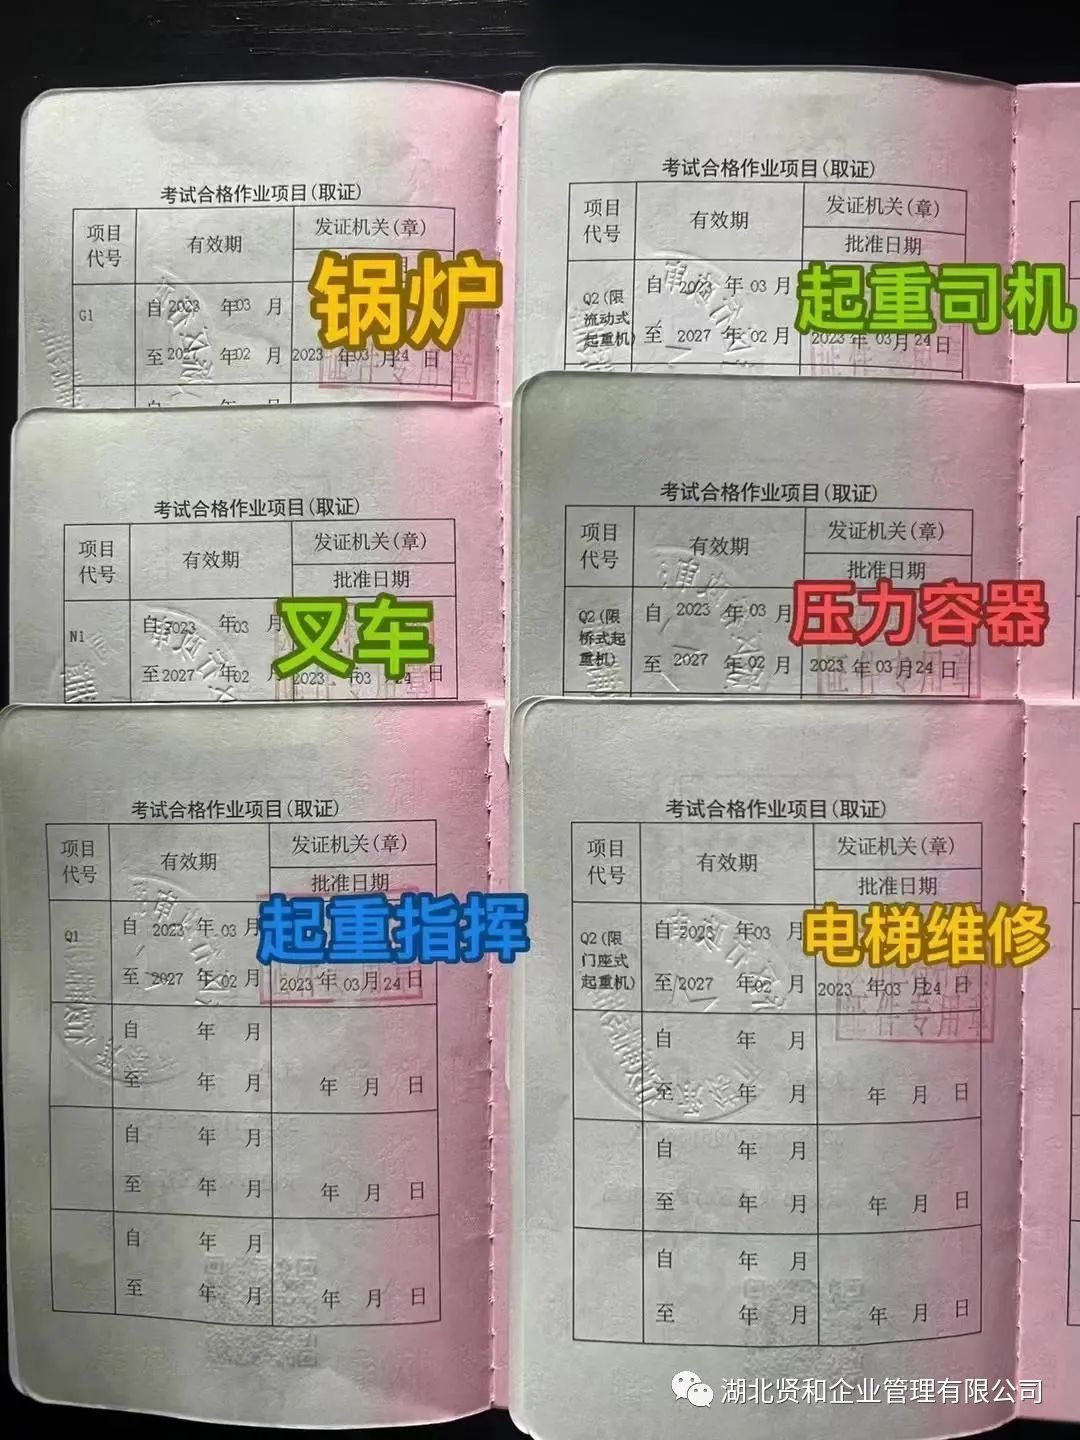 考试合格作业项目(取证)
项目代号 有效期 发证机关(章)
G1 自2023年03月
至2027年02月 2023年03月24日
锅炉
自 年 月
考试合格作业项目(取证)
项目代号 有效期 发证机关(章)
批准日期
Q2(限流动式起重机) 自2023年03月
至2027年02月 2023年03月24日
起重司机
证件专用章
考试合格作业项目(取证)
项目代号 有效期 发证机关(章)
批准日期
N1 自2023年03月
至2027年02月 2023年03月24日
叉车
考试合格作业项目(取证)
项目代号 有效期 发证机关(章)
批准日期
Q2(限桥式起重机) 自2023年03月
至2027年02月 2023年03月24日
压力容器
证件专用章
考试合格作业项目(取证)
项目代号 有效期 发证机关(章)
批准日期
Q1 自2023年03月
至2027年02月 2023年03月24日
起重指挥
自 年 月
至 年 月 年 月 日
自 年 月
至 年 月 年 月 日
自 年 月
至 年 月 年 月 日
考试合格作业项目(取证)
项目代号 有效期 发证机关(章)
批准日期
Q2(限门座式起重机) 自2023年03月
至2027年02月 2023年03月24日
电梯维修
证件专用章
自 年 月
至 年 月 年 月 日
自 年 月
至 年 月 年 月 日
自 年 月
至 年 月 年 月 日
湖北贤和企业管理有限公司